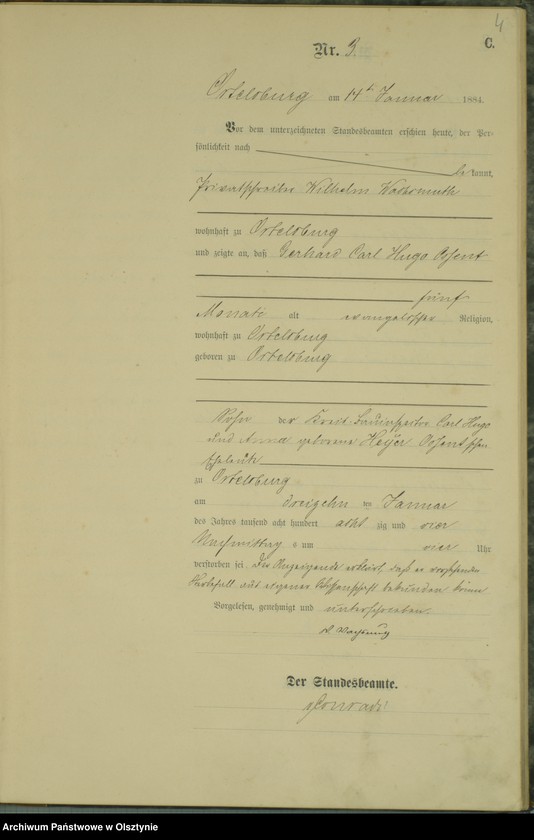 4
C.
Nr. 3.
Ortelsburg am 14t Januar 1884.
Vor dem unterzeichneten Standesbeamten erschien heute, der Per-
sönlichkeit nach
be kannt,
Privatschreiber Wilhelm
wohnhaft zu Ortelsburg
und zeigte an, daß Gerhard Carl Hugo Ossent
fünf
Monate alt evangelischer Religion,
wohnhaft zu Ortelsburg
geboren zu Ortelsburg
Sohn der Kreis-Bauinspector Carl Hugo
und Anna geborene Heyer Ossent'schen
Eheleute
zu Ortelsburg
am dreizehnten Januar
des Jahres tausend acht hundert achtzig und vier
Nachmittags um vier Uhr
verstorben sei. Der Anzeigende erklärt, daß er vorstehenden
Sterbefall aus eigener Wissenschaft bekunden könne
Vorgelesen, genehmigt und unterschrieben.
Der Standesbeamte.
Archiwum Państwowe w Olsztynie